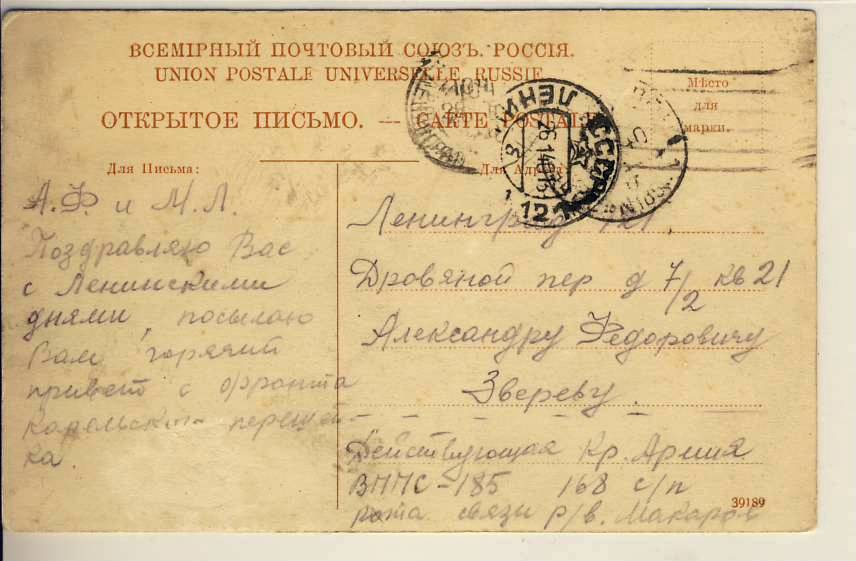 ВСЕМІРНЫЙ ПОЧТОВЫЙ СОЮЗЪ. РОССІЯ.
UNION POSTALE UNIVERSELLE. RUSSIE
ОТКРЫТОЕ ПИСЬМО. — CARTE POSTALE
Мѣсто
для
марки.
ЛЕНИН
СССР
26.1.40
121
Для Письма:
А.Ф. и М.Л.
Поздравляю Вас
с Ленинскими
днями, посылаю
Вам горячий
привет с фронта
Карельского перешей-
ка.
Для Адреса:
Ленинград 121
Дровяной пер д 7/2 кв 21
Александру Федоровичу
Звереву.
Действующая Кр. Армия
ВППС-185 168 с/п
рота связи р/в. Макаров
39189